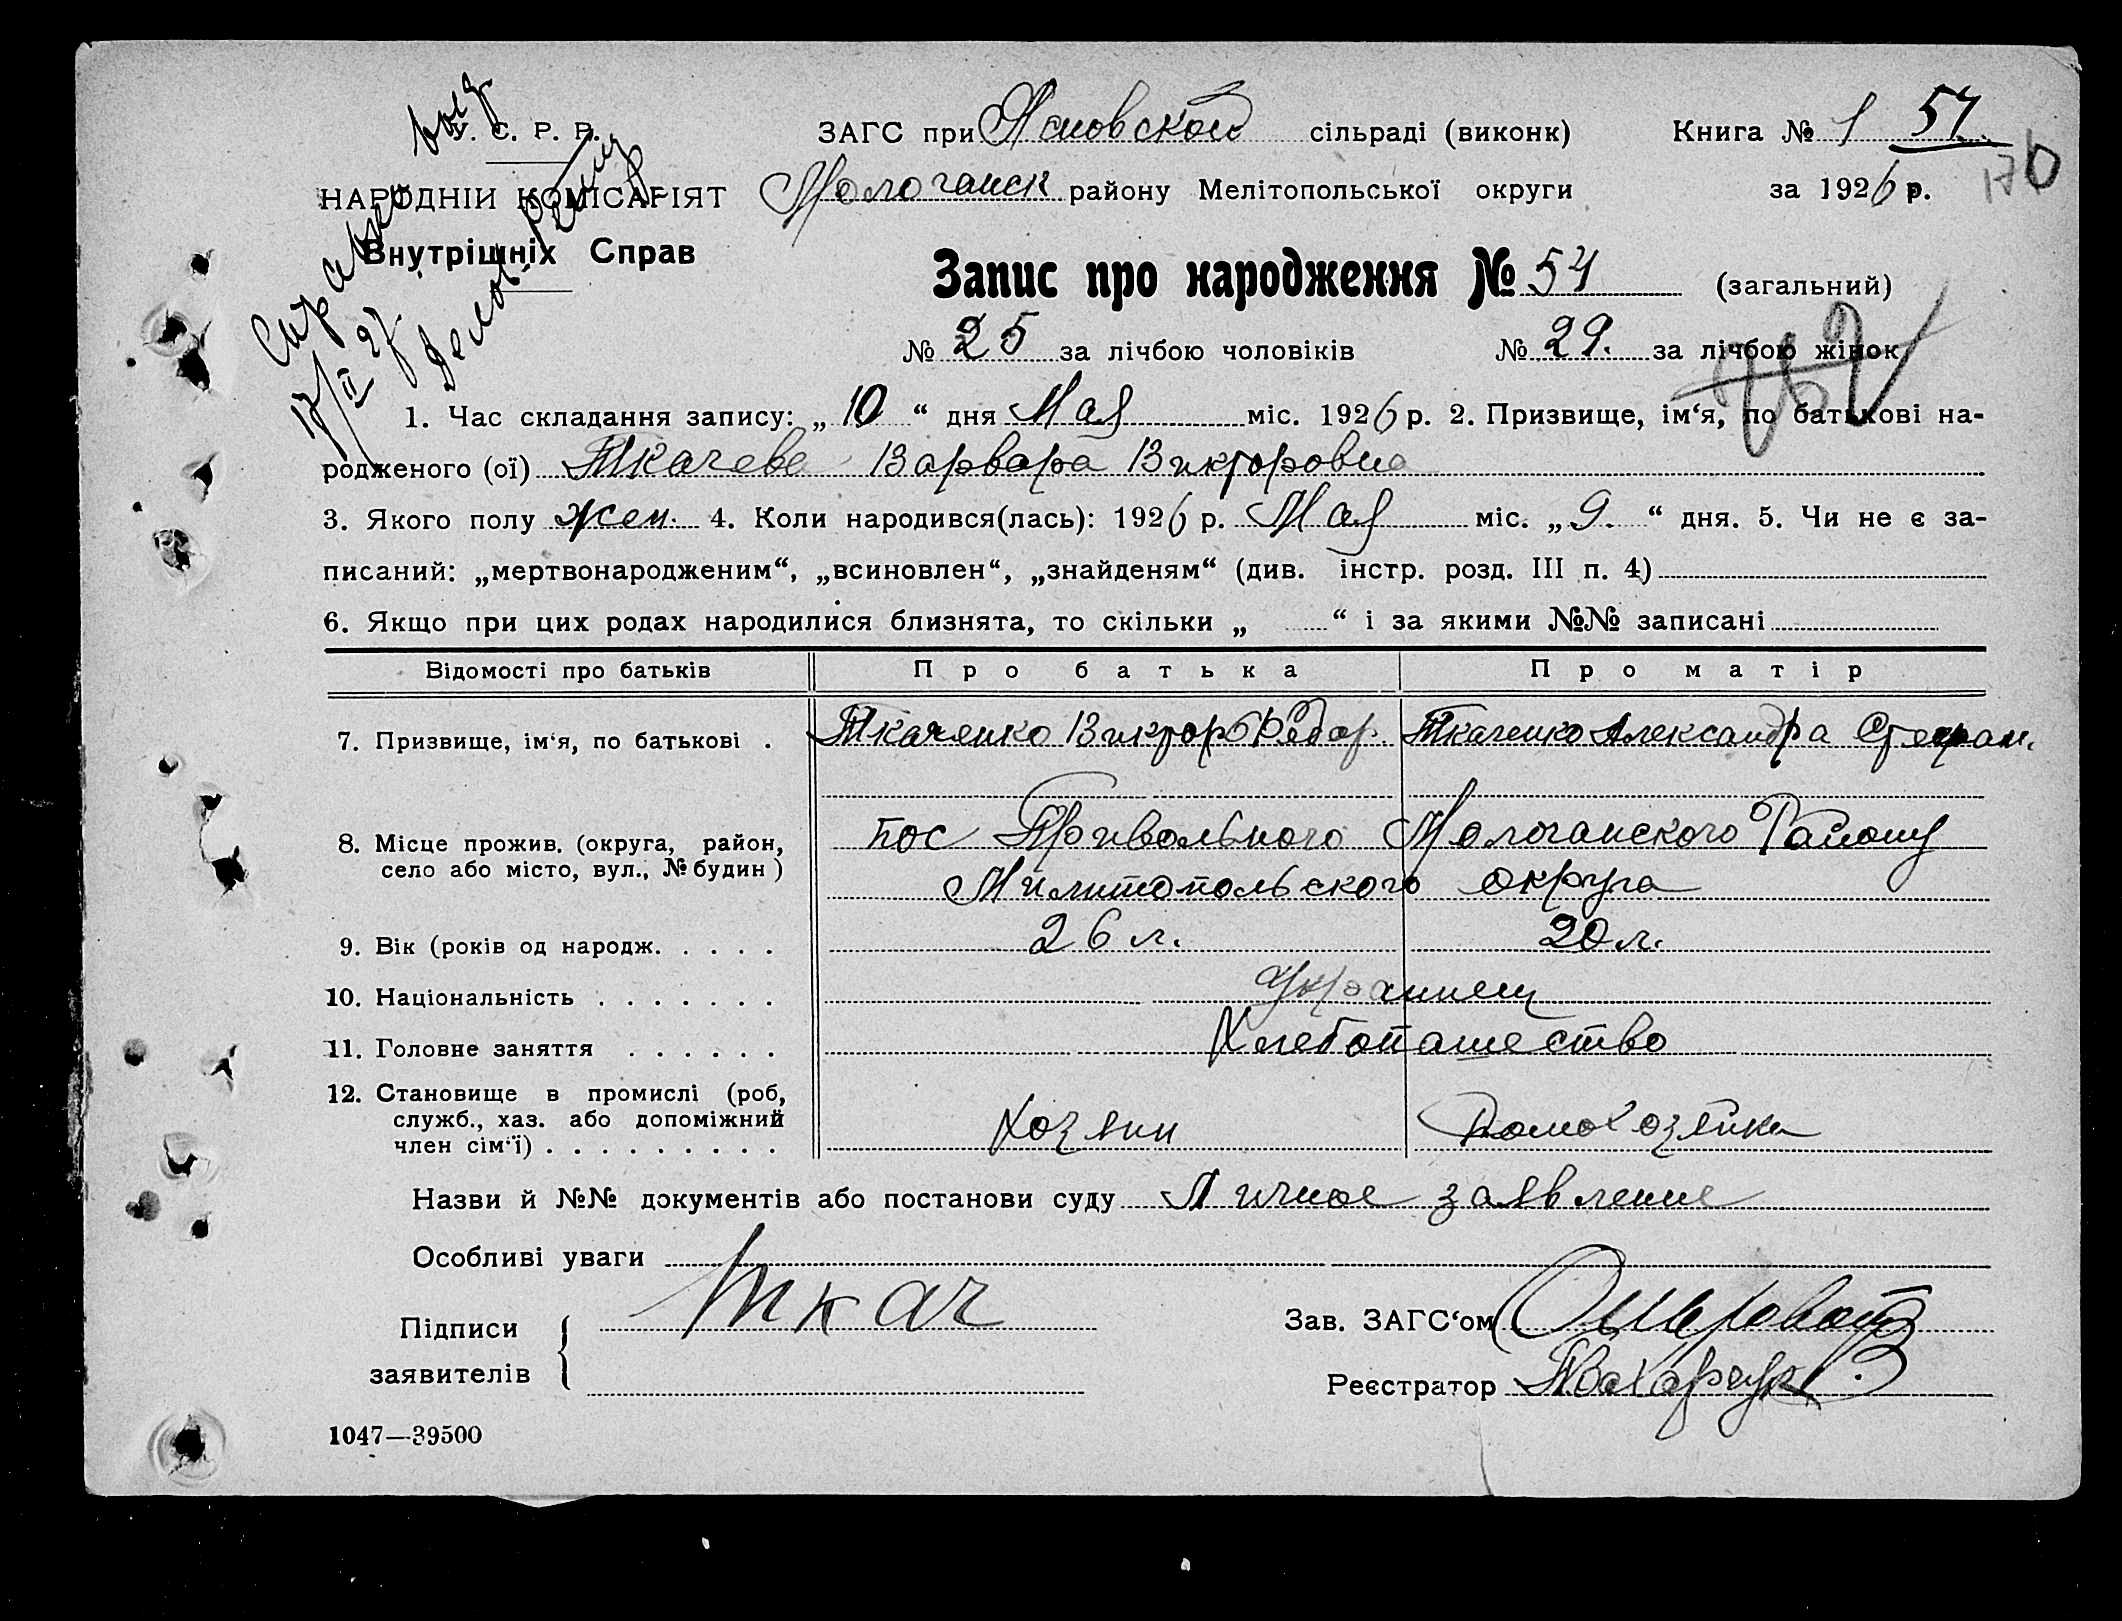 У. С. Р. Р.
НАРОДНІЙ КОМІСАРІЯТ
Внутрішніх Справ
ЗАГС при Ясновской сільраді (виконк) Книга № 1 54
Молочанск району Мелітопольської округи за 1926 р. 170
Запис про народження № 54 (загальний)
№ 25 за лічбою чоловіків № 29. за лічбою жінок
1. Час складання запису: „ 10 “ дня Мая міс. 1926 р. 2. Призвище, ім‘я, по батькові на-
родженого (ої) Ткачева Варвара Викторовна
3. Якого полу жен. 4. Коли народився(лась): 1926 р. Мая міс. „ 9. “ дня. 5. Чи не є за-
писаний: „мертвонародженим“, „всиновлен“, „знайденям“ (див. інстр. розд. III п. 4)
6. Якщо при цих родах народилися близнята, то скільки „ “ і за якими №№ записані
Відомості про батьків Про батька Про матір
7. Призвище, ім‘я, по батькові . Ткаченко Виктор Федор. Ткаченко Александра Стефан.
8. Місце прожив. (округа, район,
село або місто, вул., № будин) пос Привольного Молочанского Району
Милитопольского округа
9. Вік (років од народж. . . . . 26 л. 20 л.
10. Національність . . . . . . . Украинец
11. Головне заняття . . . . . . Хлебопашество
12. Становище в промислі (роб,
служб., хаз. або допоміжний
член сім‘ї) . . . . . . . . . Хозяин Домохозяйка
Назви й №№ документів або постанови суду Личное заявление
Особливі уваги
Підписи
заявителів Ткач
Зав. ЗАГС‘ом
Реєстратор
1047—39500